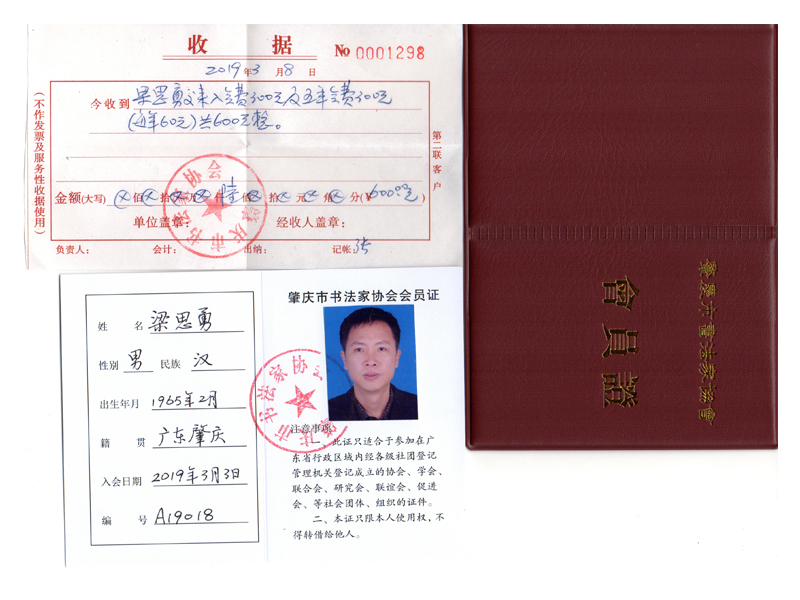 收 据
No 0001298
2019年3月8日
今收到 梁思勇交来入会费300元及五年会费300元
(每年60元)共600元整。
金额(大写) ⊗佰⊗拾⊗万⊗仟陆佰⊗拾⊗元⊗角⊗分(¥600元)
单位盖章: 经收人盖章:
负责人: 会计: 出纳: 记帐:张
(不作发票及服务性收据使用)
第二联客户
肇庆市书法家协会
肇庆市书法家協會
會員證
姓 名 梁思勇
性别 男 民族 汉
出生年月 1965年2月
籍 贯 广东肇庆
入会日期 2019年3月3日
编 号 A19018
肇庆市书法家协会会员证
肇庆市书法家协会
注意事项:
一、此证只适合于参加在广
东省行政区域内经各级社团登记
管理机关登记成立的协会、学会、
联合会、研究会、联谊会、促进
会、等社会团体、组织的证件。
二、本证只限本人使用权,不
得转借给他人。